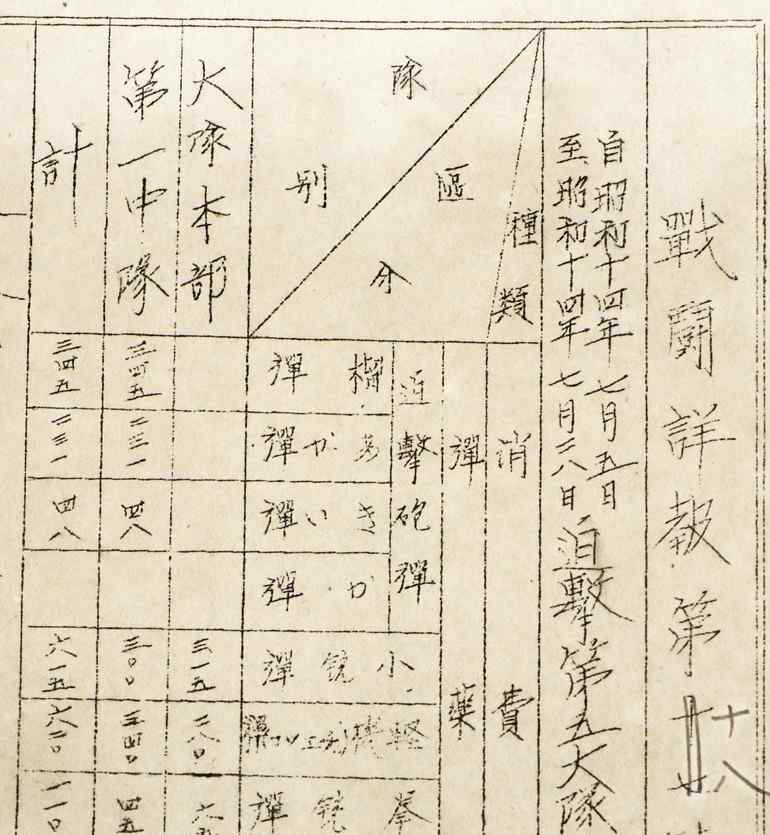 戰鬪詳報第
十八
自昭和十四年七月五日
至昭和十四年七月二八日
迫擊第五大隊
種類
區分
隊別
消費
彈藥
迫擊砲彈
榴彈
あか彈
きい彈
か彈
小銃彈
輕機
拳銃彈
大隊本部
三一五
二八〇
第一中隊
三四五
二三一
四八
三〇〇
三四〇
四五
計
三四五
二三一
四八
六一五
六二〇
一一〇